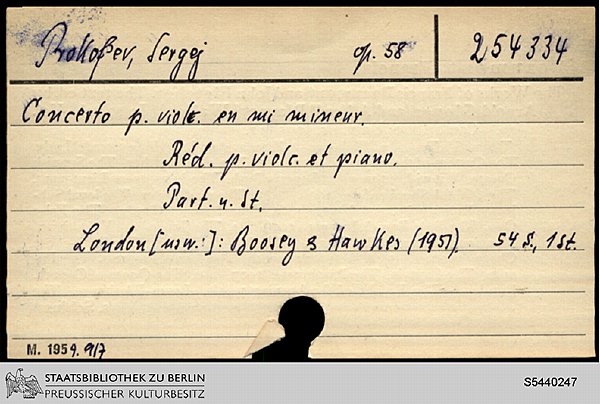 Prokofev, Sergej op. 58 254334
Concerto p. violc. en mi mineur.
Réd. p. violc. et piano.
Part. u. St.
London [usw.:]: Boosey & Hawkes (1951). 54 S., 1 St.
M. 1959. 917
STAATSBIBLIOTHEK ZU BERLIN
PREUSSISCHER KULTURBESITZ
S5440247